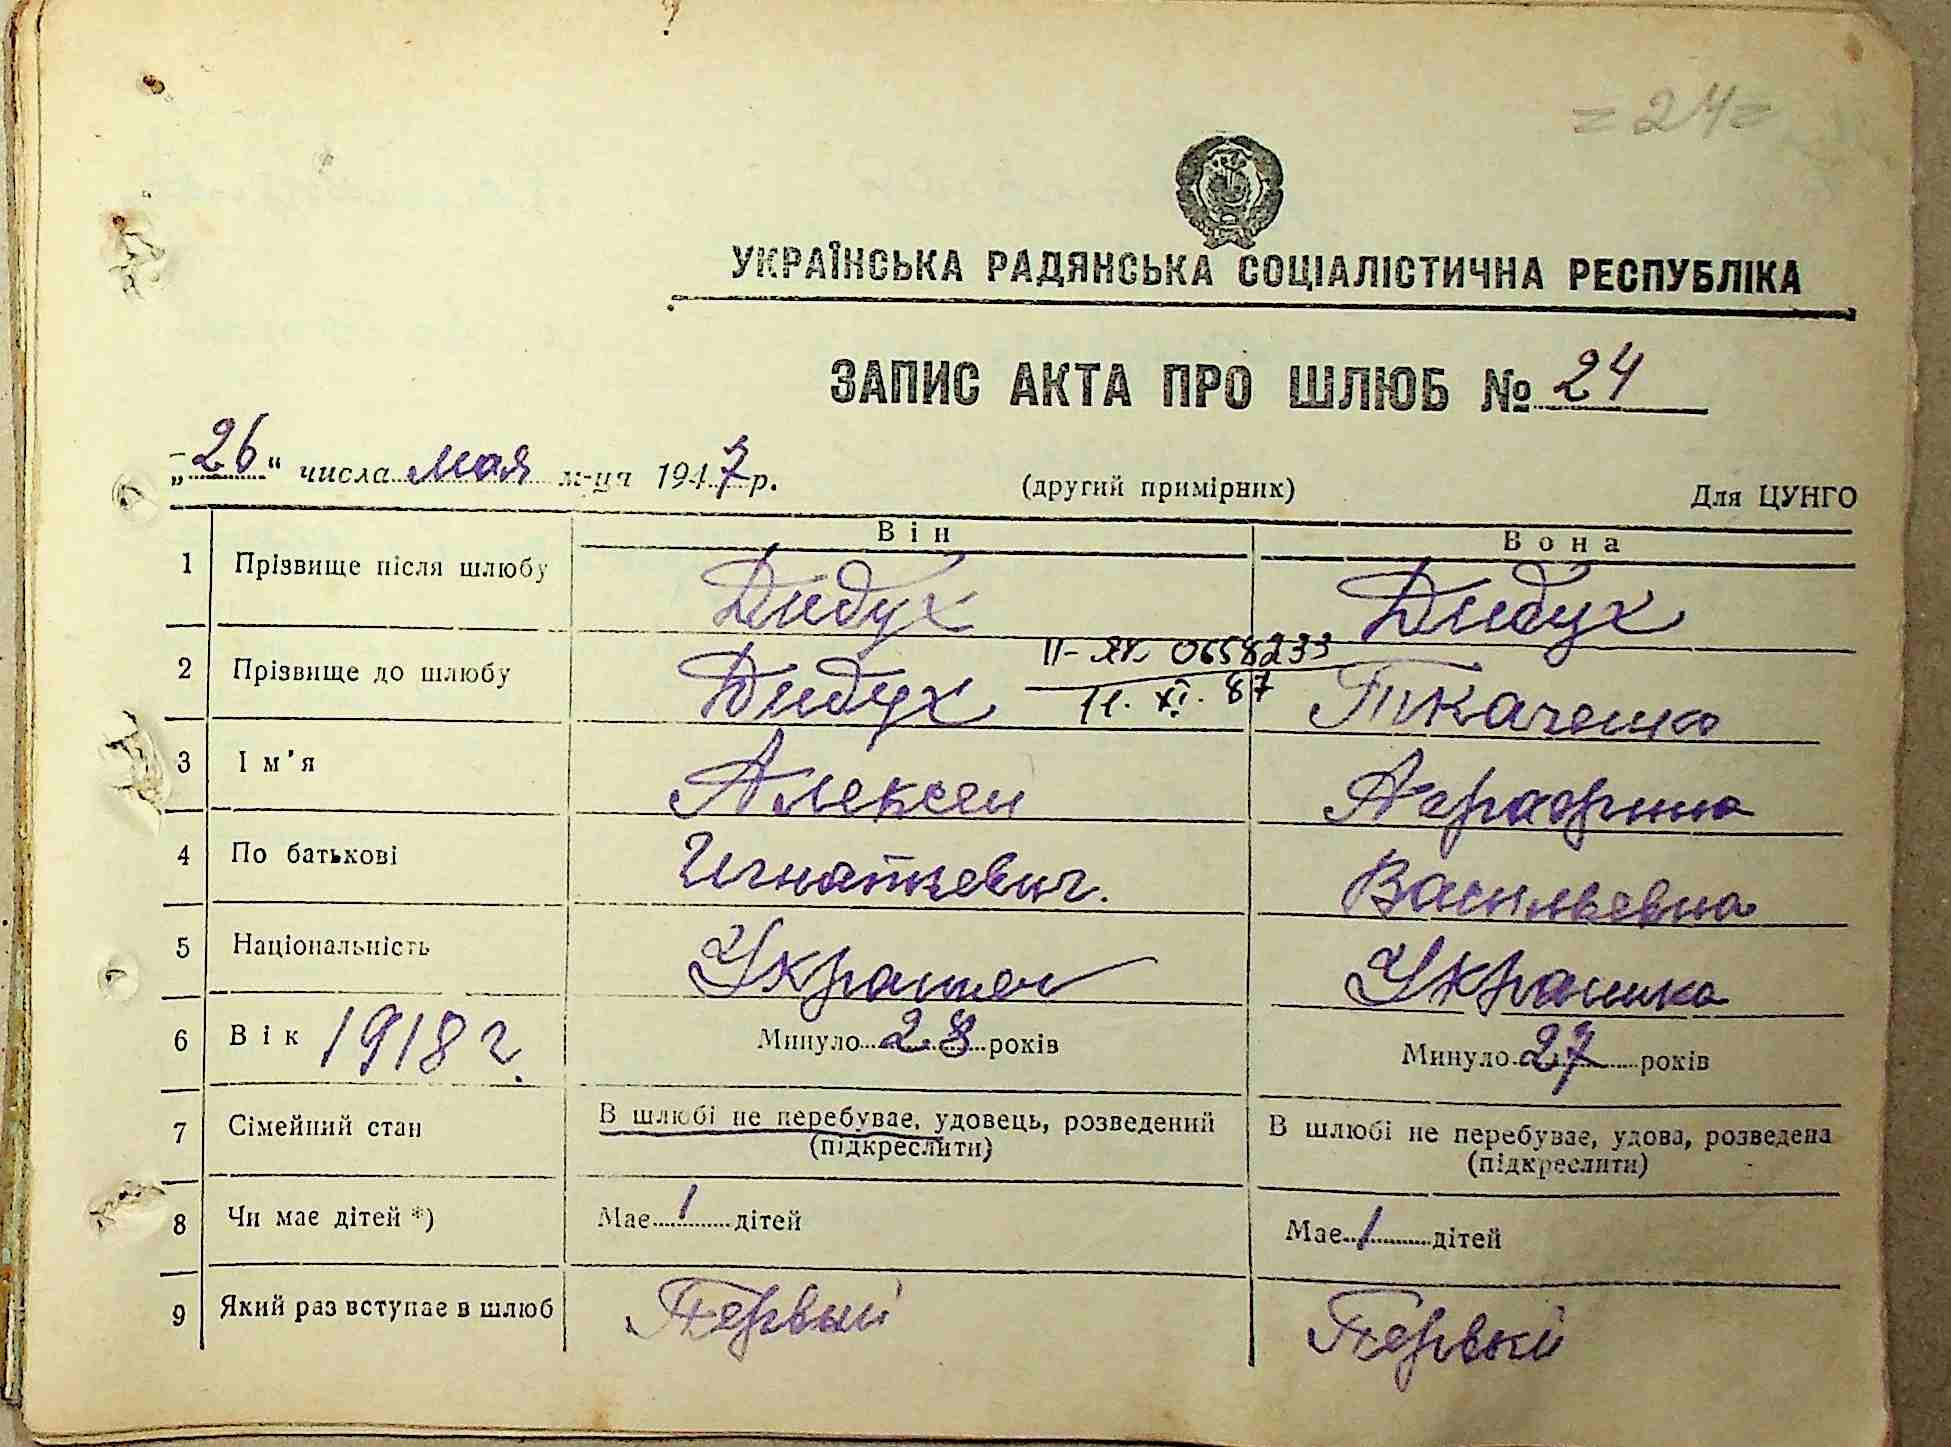 = 24 =
УКРАЇНСЬКА РАДЯНСЬКА СОЦІАЛІСТИЧНА РЕСПУБЛІКА
ЗАПИС АКТА ПРО ШЛЮБ № 24
„26“ числа мая м-ця 1947 р. (другий примірник) Для ЦУНГО
Він Вона
1 Прізвище після шлюбу Дидух Дидух
2 Прізвище до шлюбу Дидух Ткаченко
II-ЯК 0658233
11. XI. 87
3 Ім'я Алексей Аграфина
4 По батькові Игнаткевич. Васильевна
5 Національність Украинец Украинка
6 Вік 1918 г. Минуло 28 років Минуло 27 років
7 Сімейний стан В шлюбі не перебуває, удовець, розведений В шлюбі не перебуває, удова, розведена
(підкреслити) (підкреслити)
8 Чи має дітей *) Має 1 дітей Має 1 дітей
9 Який раз вступає в шлюб Первый Первый